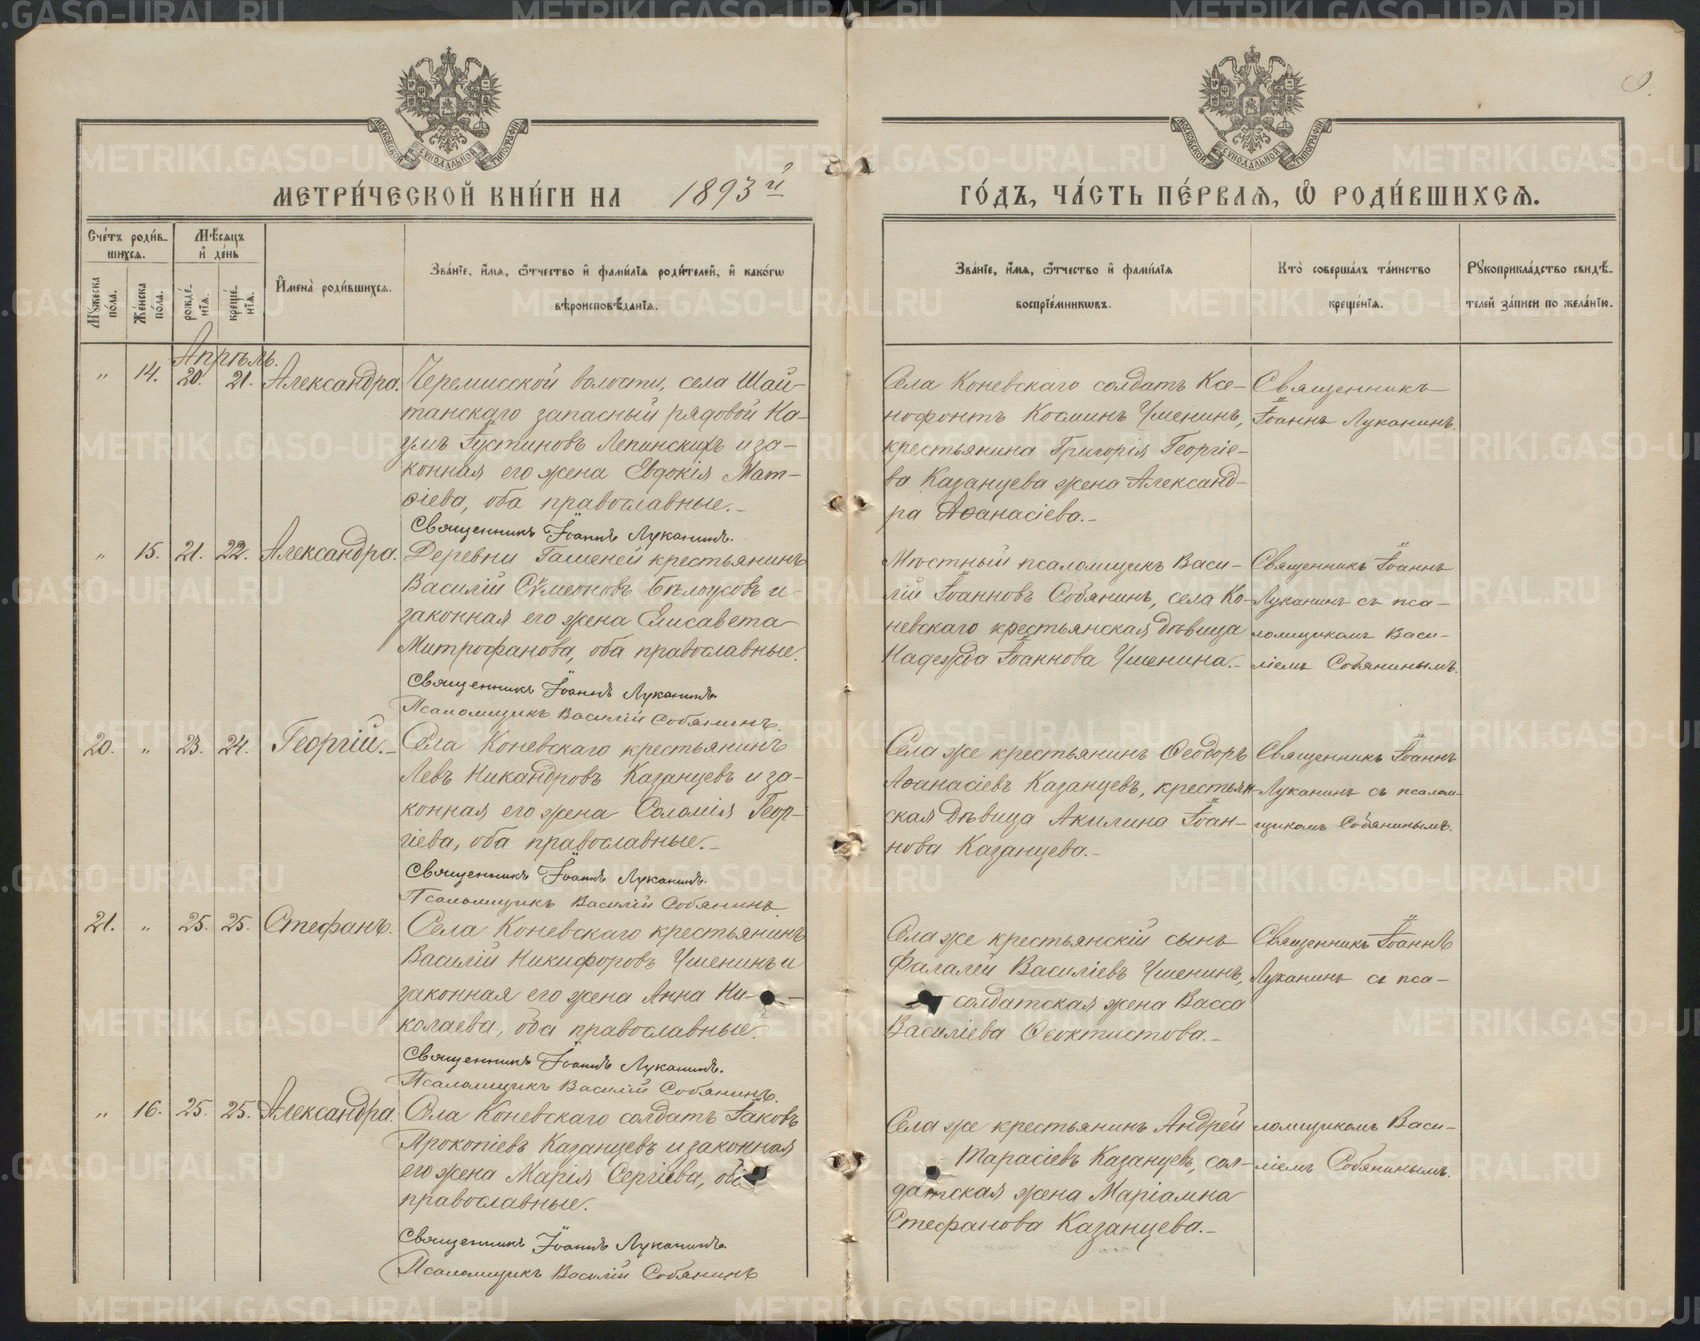 МЕТРИ́ЧЕСКОЙ КНИ́ГИ НА 1893 й
ГО́ДЪ, ЧА́СТЬ ПЕ́РВАЯ, Ѡ РОДИ́ВШИХСЯ.
МОСКОВСКОЙ СѴНОДАЛЬНОЙ ТИПОГРАФІИ
МОСКОВСКОЙ СѴНОДАЛЬНОЙ ТИПОГРАФІИ
Сче́тъ роди́в-
шихся.
Мꙋ́жеска по́ла.
Же́нска по́ла.
Мѣ́сяцъ
и҆ де́нь
рожде́нїѧ.
креще́нїѧ.
И҆мена̀ роди́вшихся.
Зва́нїе, и҆́мѧ, ѻ҆́тчество и҆ фами́лїѧ роди́телей, и҆ како́гѡ
вѣроисповѣ́данїѧ.
Зва́нїе, и҆́мѧ, ѻ҆́тчество и҆ фами́лїѧ
воспрїе́мниковъ.
Кто̀ соверша́лъ та́инство
креще́нїѧ.
Рꙋкоприкла́дство свидѣ́-
телей за́писи по жела́нїю.
Апрѣль.
" 14. 20. 21. Александра.
Черемисской волости, села Шай-
танскаго запасный рядовой На-
умъ Іустиновъ Лепинскихъ и за-
конная его жена Евдокія Мат-
ѳіева, оба православные.-
Священникъ Іоаннъ Луканинъ.
Села Коневскаго солдатъ Ксе-
нофонтъ Косминъ Уменинъ,
крестьянина Григорія Георгіе-
ва Казанцева жена Александ-
ра Аѳанасіева.-
Священникъ
Іоаннъ Луканинъ.
" 15. 21. 22. Александра.
Деревни Гашеней крестьянинъ
Василій Сѵмеоновъ Бѣлоусовъ и
законная его жена Елисавета
Митрофанова, оба православные.
Священникъ Іоаннъ Луканинъ.
Псаломщикъ Василій Собянинъ.
Мѣстный псаломщикъ Васи-
лій Іоанновъ Собянинъ, села Ко-
невскаго крестьянская дѣвица
Надежда Іоаннова Уменина.-
Священникъ Іоаннъ
Луканинъ съ пса-
ломщикомъ Васи-
ліемъ Собянинымъ.
20. " 23. 24. Георгій.-
Села Коневскаго крестьянинъ
Левъ Никандровъ Казанцевъ и за-
конная его жена Саломія Геор-
гіева, оба православные.-
Священникъ Іоаннъ Луканинъ.
Псаломщикъ Василій Собянинъ.
Села же крестьянинъ Ѳеодоръ
Аѳанасіевъ Казанцевъ, крестьян-
ская дѣвица Акилина Іоан-
нова Казанцева.-
Священникъ Іоаннъ
Луканинъ съ псалом-
щикомъ Собянинымъ.
21. " 25. 25. Стефанъ.
Села Коневскаго крестьянинъ
Василій Никифоровъ Уменинъ и
законная его жена Анна Ни-
колаева, оба православные.
Священникъ Іоаннъ Луканинъ.
Псаломщикъ Василій Собянинъ.
Села же крестьянскій сынъ
Фалалей Василіевъ Уменинъ,
солдатская жена Васса
Василіева Ѳеоктистова.-
Священникъ Іоаннъ
Луканинъ съ пса-
" 16. 25. 25. Александра
Села Коневскаго солдатъ Іаковъ
Прокопіевъ Казанцевъ и законная
его жена Марія Сергіева, оба
православные.
Священникъ Іоаннъ Луканинъ.
Псаломщикъ Василій Собянинъ
Села же крестьянинъ Андрей
Тарасіевъ Казанцевъ, сол-
датская жена Маріамна
Стефанова Казанцева.-
ломщикомъ Васи-
ліемъ Собянинымъ.
METRIKI.GASO-URAL.RU